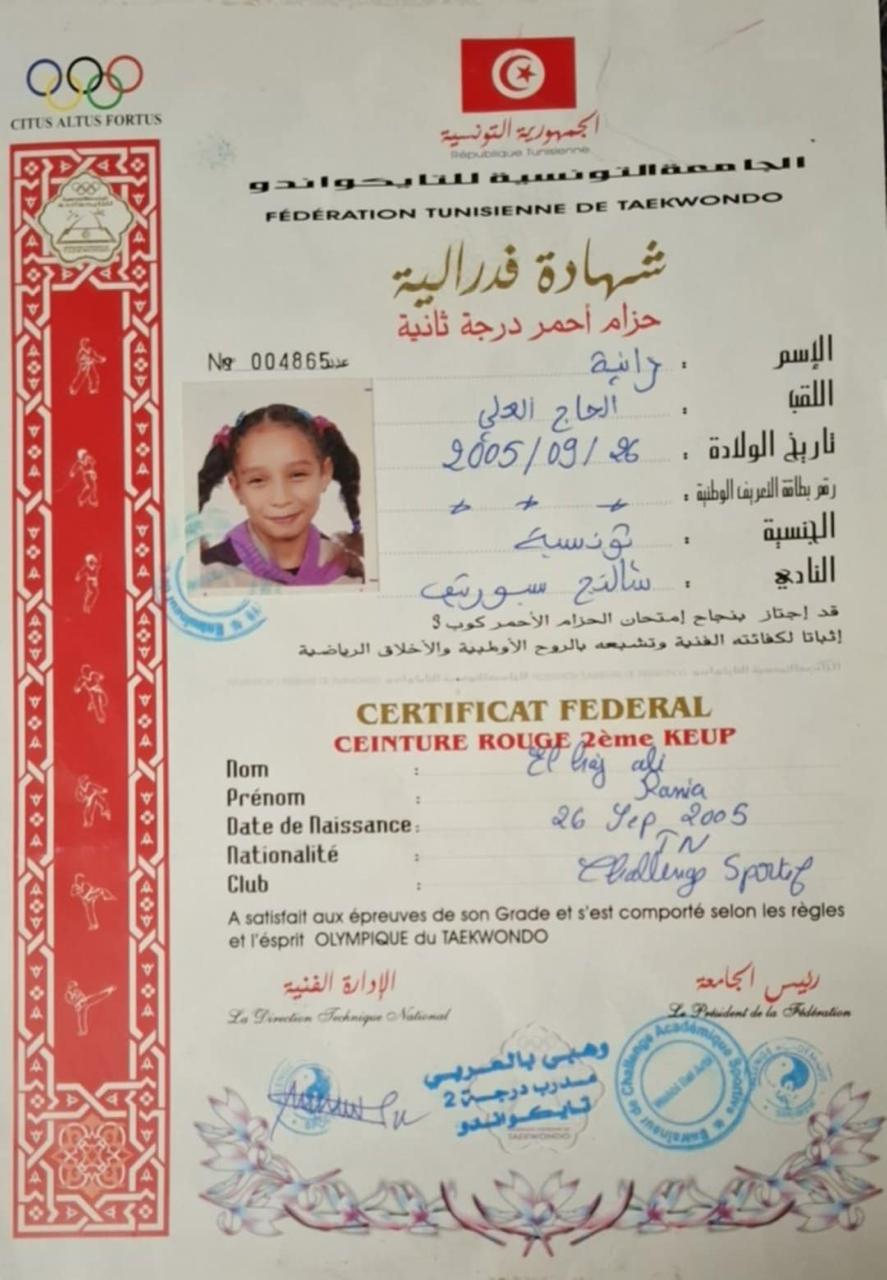 CITUS ALTUS FORTUS
الجمهورية التونسية
République Tunisienne
الجامعة التونسية للتايكواندو
FÉDÉRATION TUNISIENNE DE TAEKWONDO
شهادة فدرالية
حزام أحمر درجة ثانية
Nº 004865 عدد
الإسم : رانية
اللقب : الحاج العلي
تاريخ الولادة : 2005/09/26
رقم بطاقة التعريف الوطنية :
الجنسية : تونسية
النادي : شالنج سبورتيف
قد إجتاز بنجاح إمتحان الحزام الأحمر كوب 3
إثباتا لكفائته الفنية وتشبعه بالروح الأوطبية والأخلاق الرياضية
CERTIFICAT FEDERAL
CEINTURE ROUGE 2ème KEUP
Nom : El haj ali
Prénom : Rania
Date de Naissance : 26 Sep 2005
Nationalité : TN
Club : Challenge Sportif
A satisfait aux épreuves de son Grade et s'est comporté selon les règles
et l'ésprit OLYMPIQUE du TAEKWONDO
رئيس الجامعة
الإدارة الفنية
Le Président de la Fédération
La Direction Technique National
وهبي بالعربي
مدرب درجة 2
تايكواندو
TAEKWONDO
de Challenge Académique Sportive
Entraineur